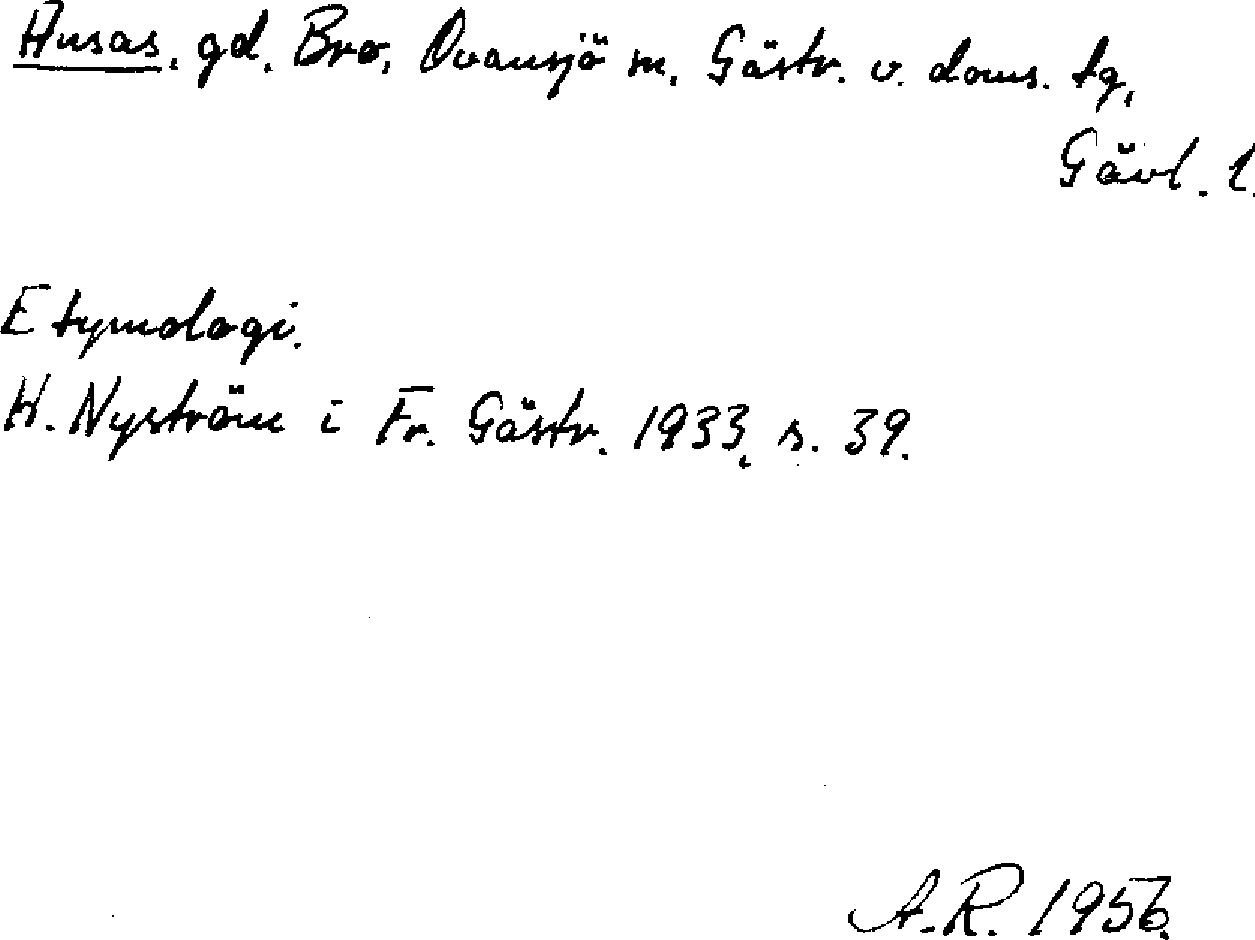 Husas, gd. Bro, Ovansjö sn, Gästr. v. doms. tg,
Gävl. l.
Etymologi.
H. Nyström i Fr. Gästr. 1933, s. 39.
A.R. 1956.